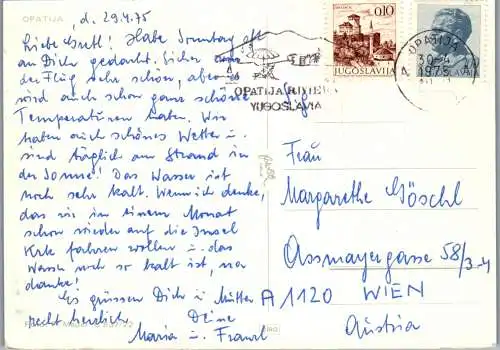 OPATIJA, d. 29.4.75
Liebe Gretl! Habe Sonntag oft
an Dich gedacht. Sicher war
der Flug sehr schön, aber es
wird auch schon ganz schöne
Temperaturen haben. Wir
haben auch schönes Wetter u.
sind täglich am Strand in
der Sonne! Das Wasser ist
noch sehr kalt. Wenn ich denke,
das wir in einem Monat
schon wieder auf die Insel
Krk fahren wollen u. das
Wasser noch so kalt ist, na
danke!
Es grüssen Dich u. Mutter
recht herzlich Deine
Maria u. Franzl
0,10
JUGOSLAVIJA
OPATIJA RIVIERA
YUGOSLAVIA
OPATIJA
30-4
1975
Frau
Margarethe Göschl
Assmayergasse 58/3.4
A 1120 WIEN
Austria